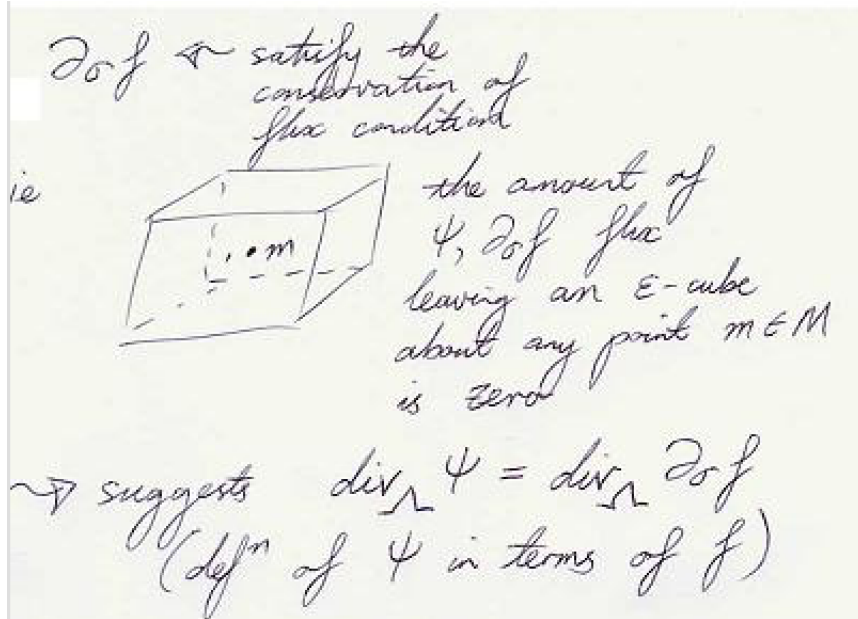 ∂σf ← satisfy the
conservation of
flux condition
ie
• m
the amount of
ψ, ∂σf flux
leaving an ε-cube
about any point m ∈ M
is zero
⇝ suggests div_Ω ψ = div_Ω ∂σf
(defⁿ of ψ in terms of f)